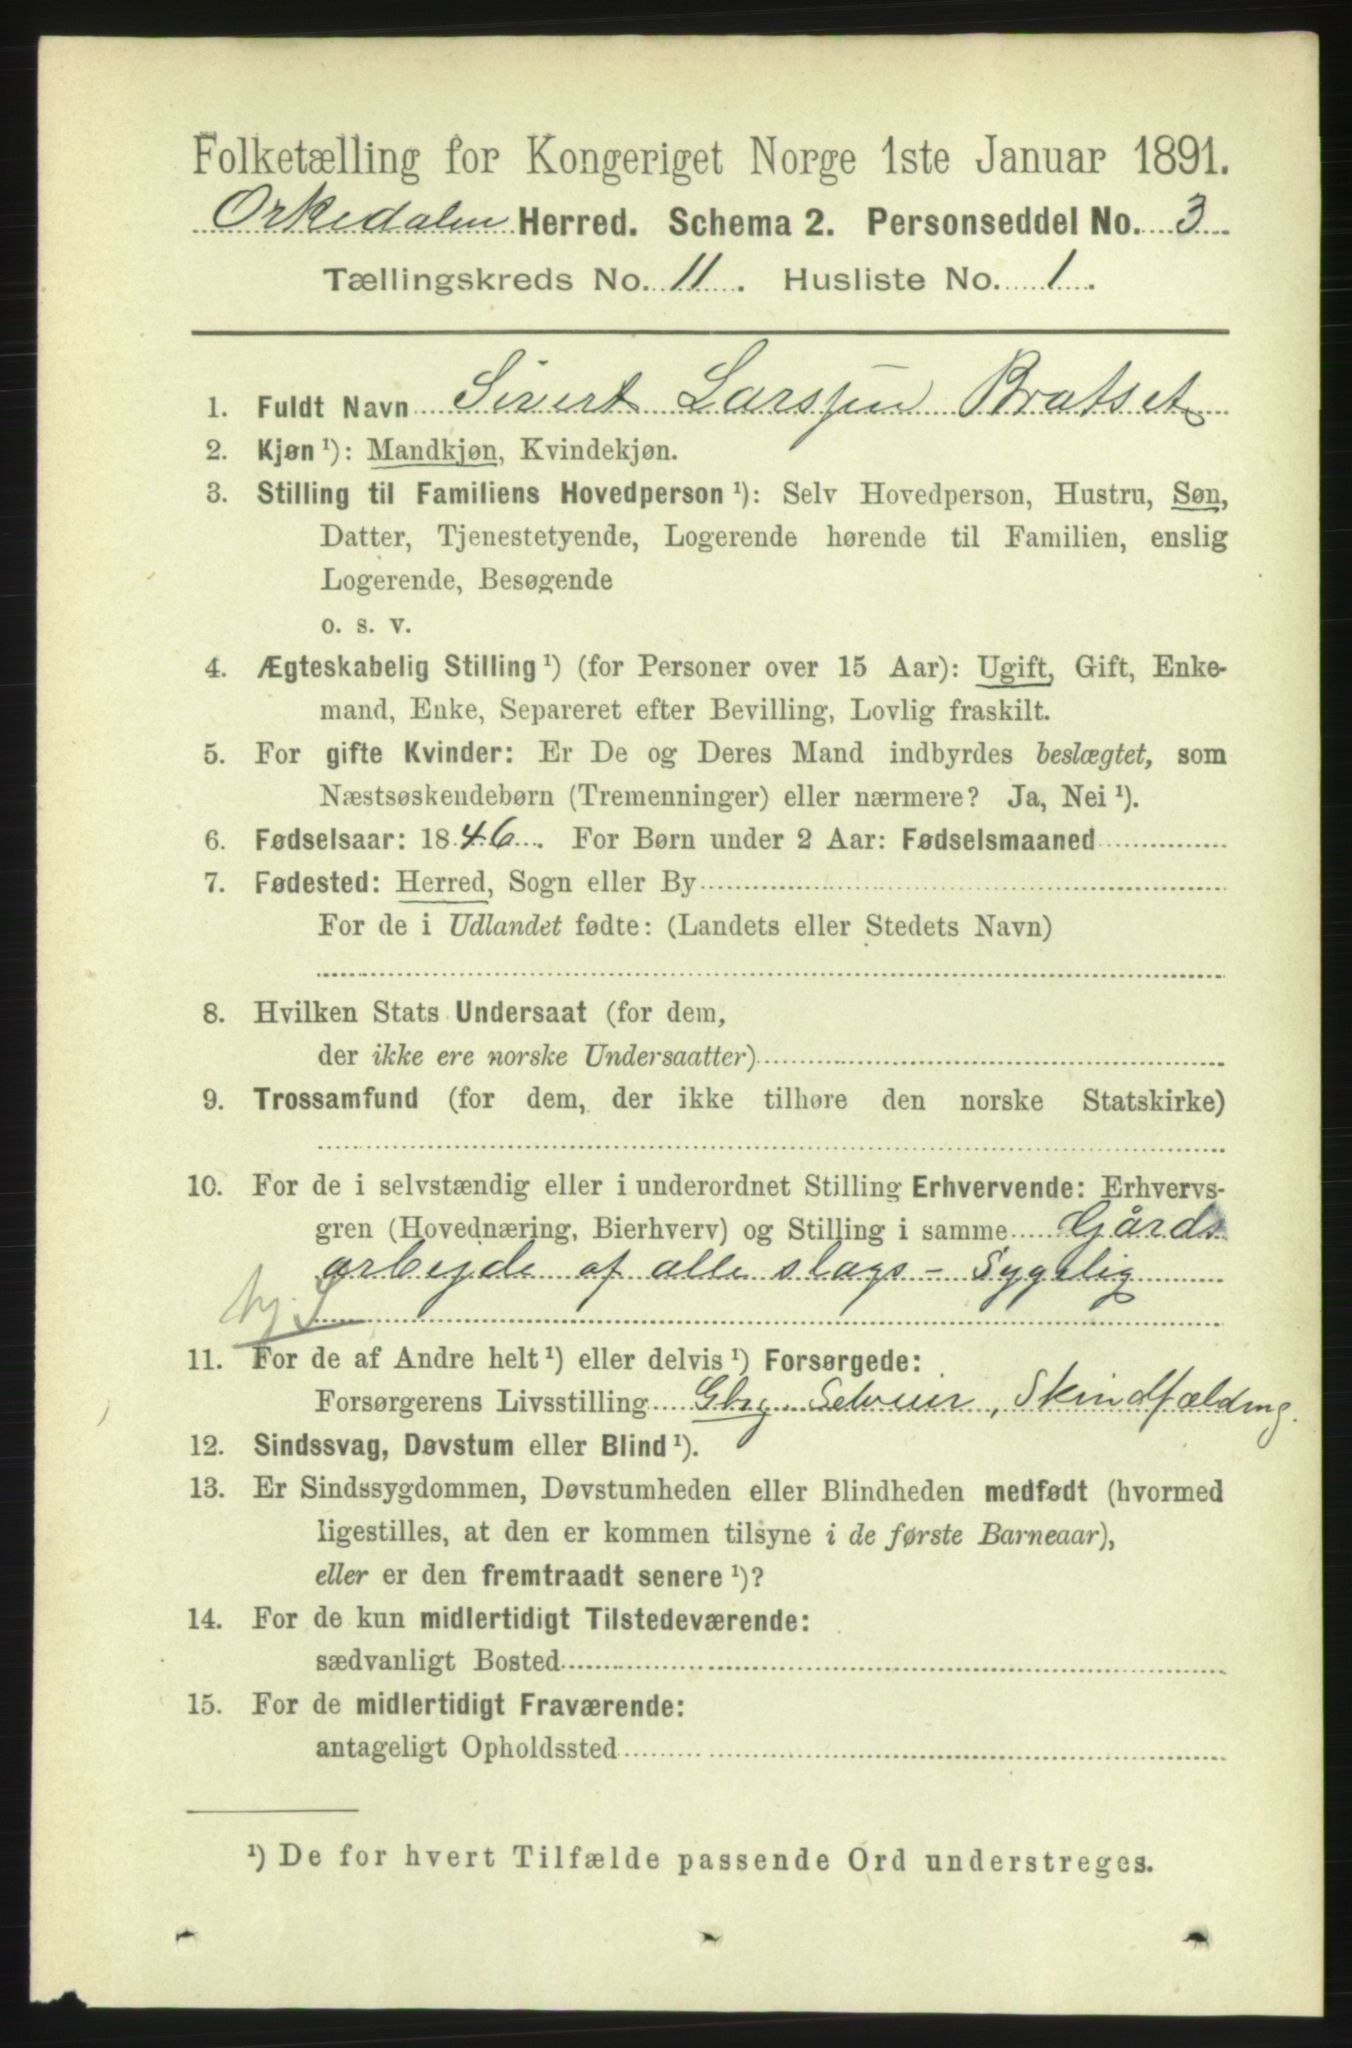 Folketælling for Kongeriget Norge 1ste Januar 1891.
Orkedalen Herred. Schema 2. Personseddel No. 3
Tællingskreds No. 11. Husliste No. 1.
1. Fuldt Navn Sivert Larssen Bratset
2. Kjøn ¹): Mandkjøn, Kvindekjøn.
3. Stilling til Familiens Hovedperson ¹): Selv Hovedperson, Hustru, Søn,
Datter, Tjenestetyende, Logerende hørende til Familien, enslig
Logerende, Besøgende
o. s. v.
4. Ægteskabelig Stilling ¹) (for Personer over 15 Aar): Ugift, Gift, Enke-
mand, Enke, Separeret efter Bevilling, Lovlig fraskilt.
5. For gifte Kvinder: Er De og Deres Mand indbyrdes beslægtet, som
Næstsøskendebørn (Tremenninger) eller nærmere? Ja, Nei ¹).
6. Fødselsaar: 1846. For Børn under 2 Aar: Fødselsmaaned
7. Fødested: Herred, Sogn eller By
For de i Udlandet fødte: (Landets eller Stedets Navn)
8. Hvilken Stats Undersaat (for dem,
der ikke ere norske Undersaatter)
9. Trossamfund (for dem, der ikke tilhøre den norske Statskirke)
10. For de i selvstændig eller i underordnet Stilling Erhvervende: Erhvervs-
gren (Hovednæring, Bierhverv) og Stilling i samme Gårds
arbejde af alle slags - Sygelig
11. For de af Andre helt ¹) eller delvis ¹) Forsørgede:
Forsørgerens Livsstilling Gbrg. Selveier, Skindfælding.
12. Sindssvag, Døvstum eller Blind ¹).
13. Er Sindssygdommen, Døvstumheden eller Blindheden medfødt (hvormed
ligestilles, at den er kommen tilsyne i de første Barneaar),
eller er den fremtraadt senere ¹)?
14. For de kun midlertidigt Tilstedeværende:
sædvanligt Bosted
15. For de midlertidigt Fraværende:
antageligt Opholdssted
¹) De for hvert Tilfælde passende Ord understreges.